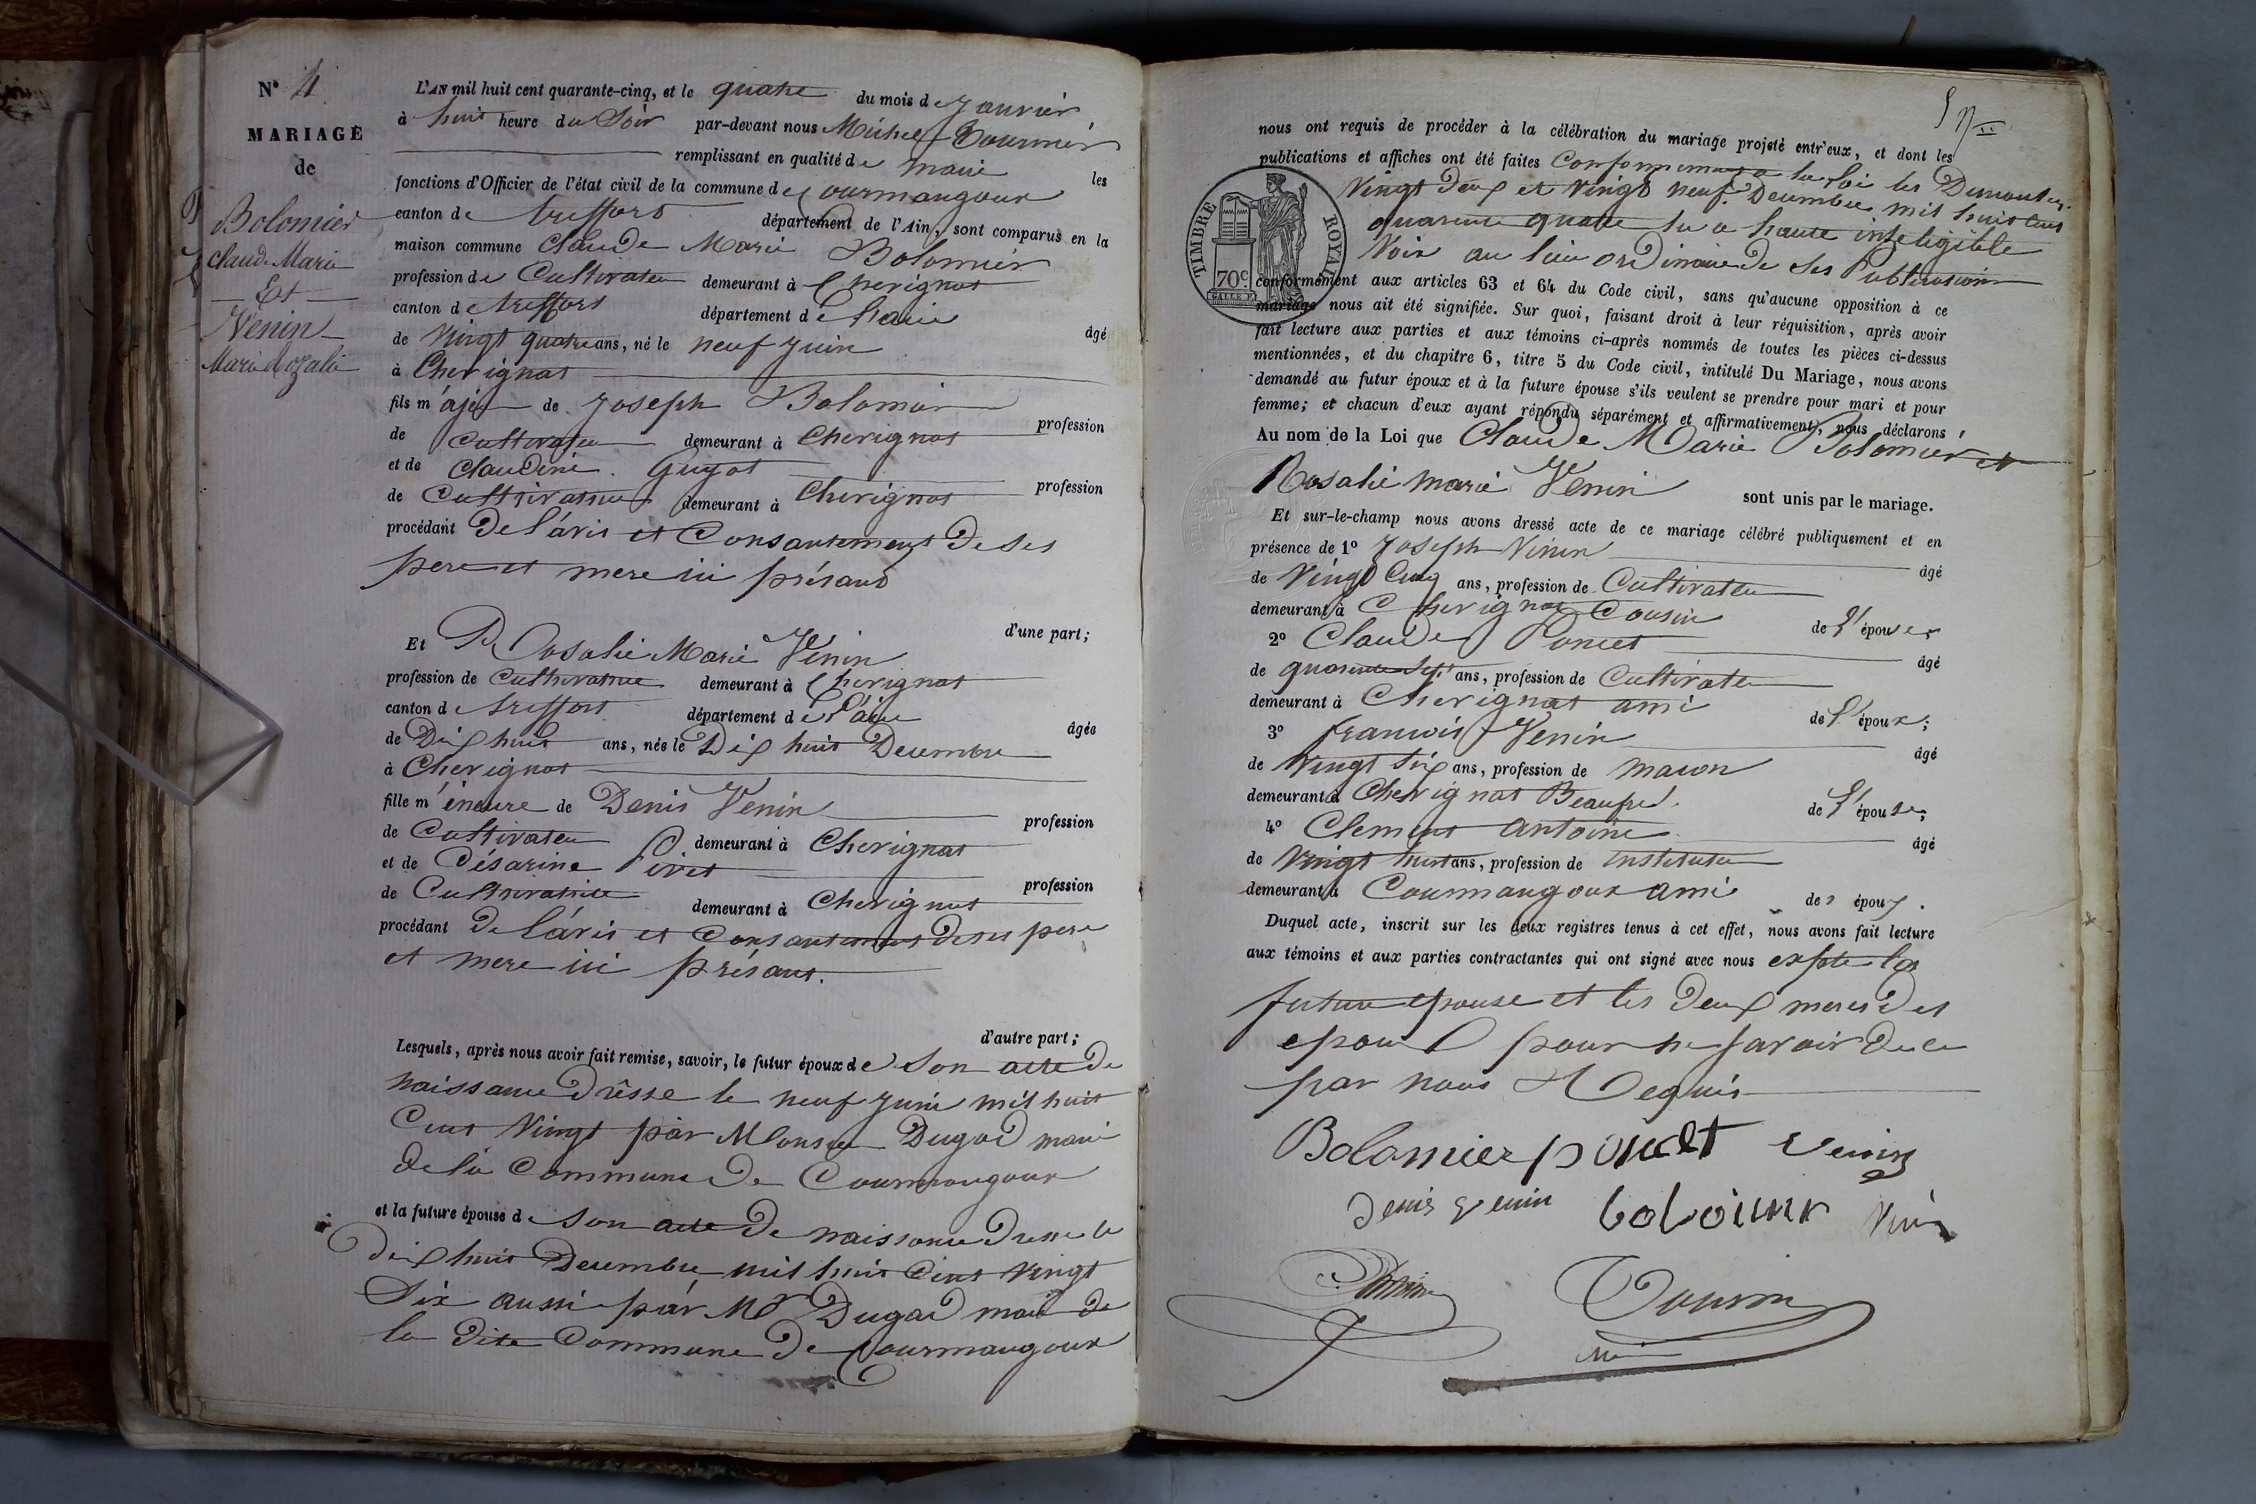 N° 4
MARIAGE
de
Bolomier
Claude Marie
Et
Venin
Marie Rozalie
L'AN mil huit cent quarante-cinq, et le quatre du mois de Janvier
à huit heure du Soir par-devant nous Michel Tournier
remplissant en qualité de maire les
fonctions d'Officier de l'état civil de la commune de Courmangoux
canton de treffort département de l'Ain, sont comparus en la
maison commune Claude Marie Bolomier
profession de Cultivateur demeurant à Cherignat
canton de treffort département de l'hain
âgé
de Vingt quatre ans, né le neuf Juin
à Cherignat
fils majer de Joseph Bolomier
profession
de Cultivateur demeurant à Cherignat
et de Claudine Guyot
profession
de Cultivatrice demeurant à Cherignat
procédant De l'avis et Consantement De Ses
pere et mere ici présand
d'une part;
Et Rosalie Marie Venin
profession de Cultivatrice demeurant à Cherignat
canton de treffort département de l'ain
âgée
de Dix huit ans, née le Dix huit Decembre
à Cherignat
fille mineure de Denis Venin
profession
de Cultivateur demeurant à Cherignat
et de Césarine Pivet
profession
de Cultivatrice demeurant à Cherignat
procédant de l'avis et Consantement de ses pere
et mere ici présant.
d'autre part;
Lesquels, après nous avoir fait remise, savoir, le futur époux de Son acte de
naissance Drésse le neuf Juin mil huit
Cent Vingt par Monsieur Dugad maire
de la Commune De Courmangoux
et la future épouse de Son acte De naissance Dresse le
dix huit Decembre mil huit Cent Vingt
Six aussi par Mr Dugad maire de
la dite Commune De Courmangoux
nous ont requis de procéder à la célébration du mariage projeté entr'eux, et dont les
publications et affiches ont été faites Conformement a la loi les Dimanches
Vingt Deux et Vingt neuf Decembre mil huit Cent
quarente quatre lu a haute inteligible
Voix au lieu ordinaire de Ses Publications
TIMBRE ROYAL
70c
conformément aux articles 63 et 64 du Code civil, sans qu'aucune opposition à ce
mariage nous ait été signifiée. Sur quoi, faisant droit à leur réquisition, après avoir
fait lecture aux parties et aux témoins ci-après nommés de toutes les pièces ci-dessus
mentionnées, et du chapitre 6, titre 5 du Code civil, intitulé Du Mariage, nous avons
demandé au futur époux et à la future épouse s'ils veulent se prendre pour mari et pour
femme; et chacun d'eux ayant répondu séparément et affirmativement, nous déclarons
Au nom de la Loi que Claude Marie Bolomier et
Rosalie Marie Venin sont unis par le mariage.
Et sur-le-champ nous avons dressé acte de ce mariage célébré publiquement et en
présence de 1° Joseph Venin
âgé
de Vingt Cinq ans, profession de Cultivateur
demeurant à Cherignat Cousin de l'épouse
2° Claude Poncet
âgé
de quarente Sept ans, profession de Cultivateur
demeurant à Cherignat ami de l'époux;
3° francois Venin
âgé
de Vingt Six ans, profession de macon
demeurant à Cherignat Beaufrere de l'épouse;
4° Clement Antoine
âgé
de Vingt huit ans, profession de instituteur
demeurant à Courmangoux ami des époux.
Duquel acte, inscrit sur les deux registres tenus à cet effet, nous avons fait lecture
aux témoins et aux parties contractantes qui ont signé avec nous expte la
future epouse et les Deux meres Des
epoux pour ne Savoir De ce
par nous Requis
Bolomier poncet Venin
Denis Venin boloimr Venin
Antoine Tournier